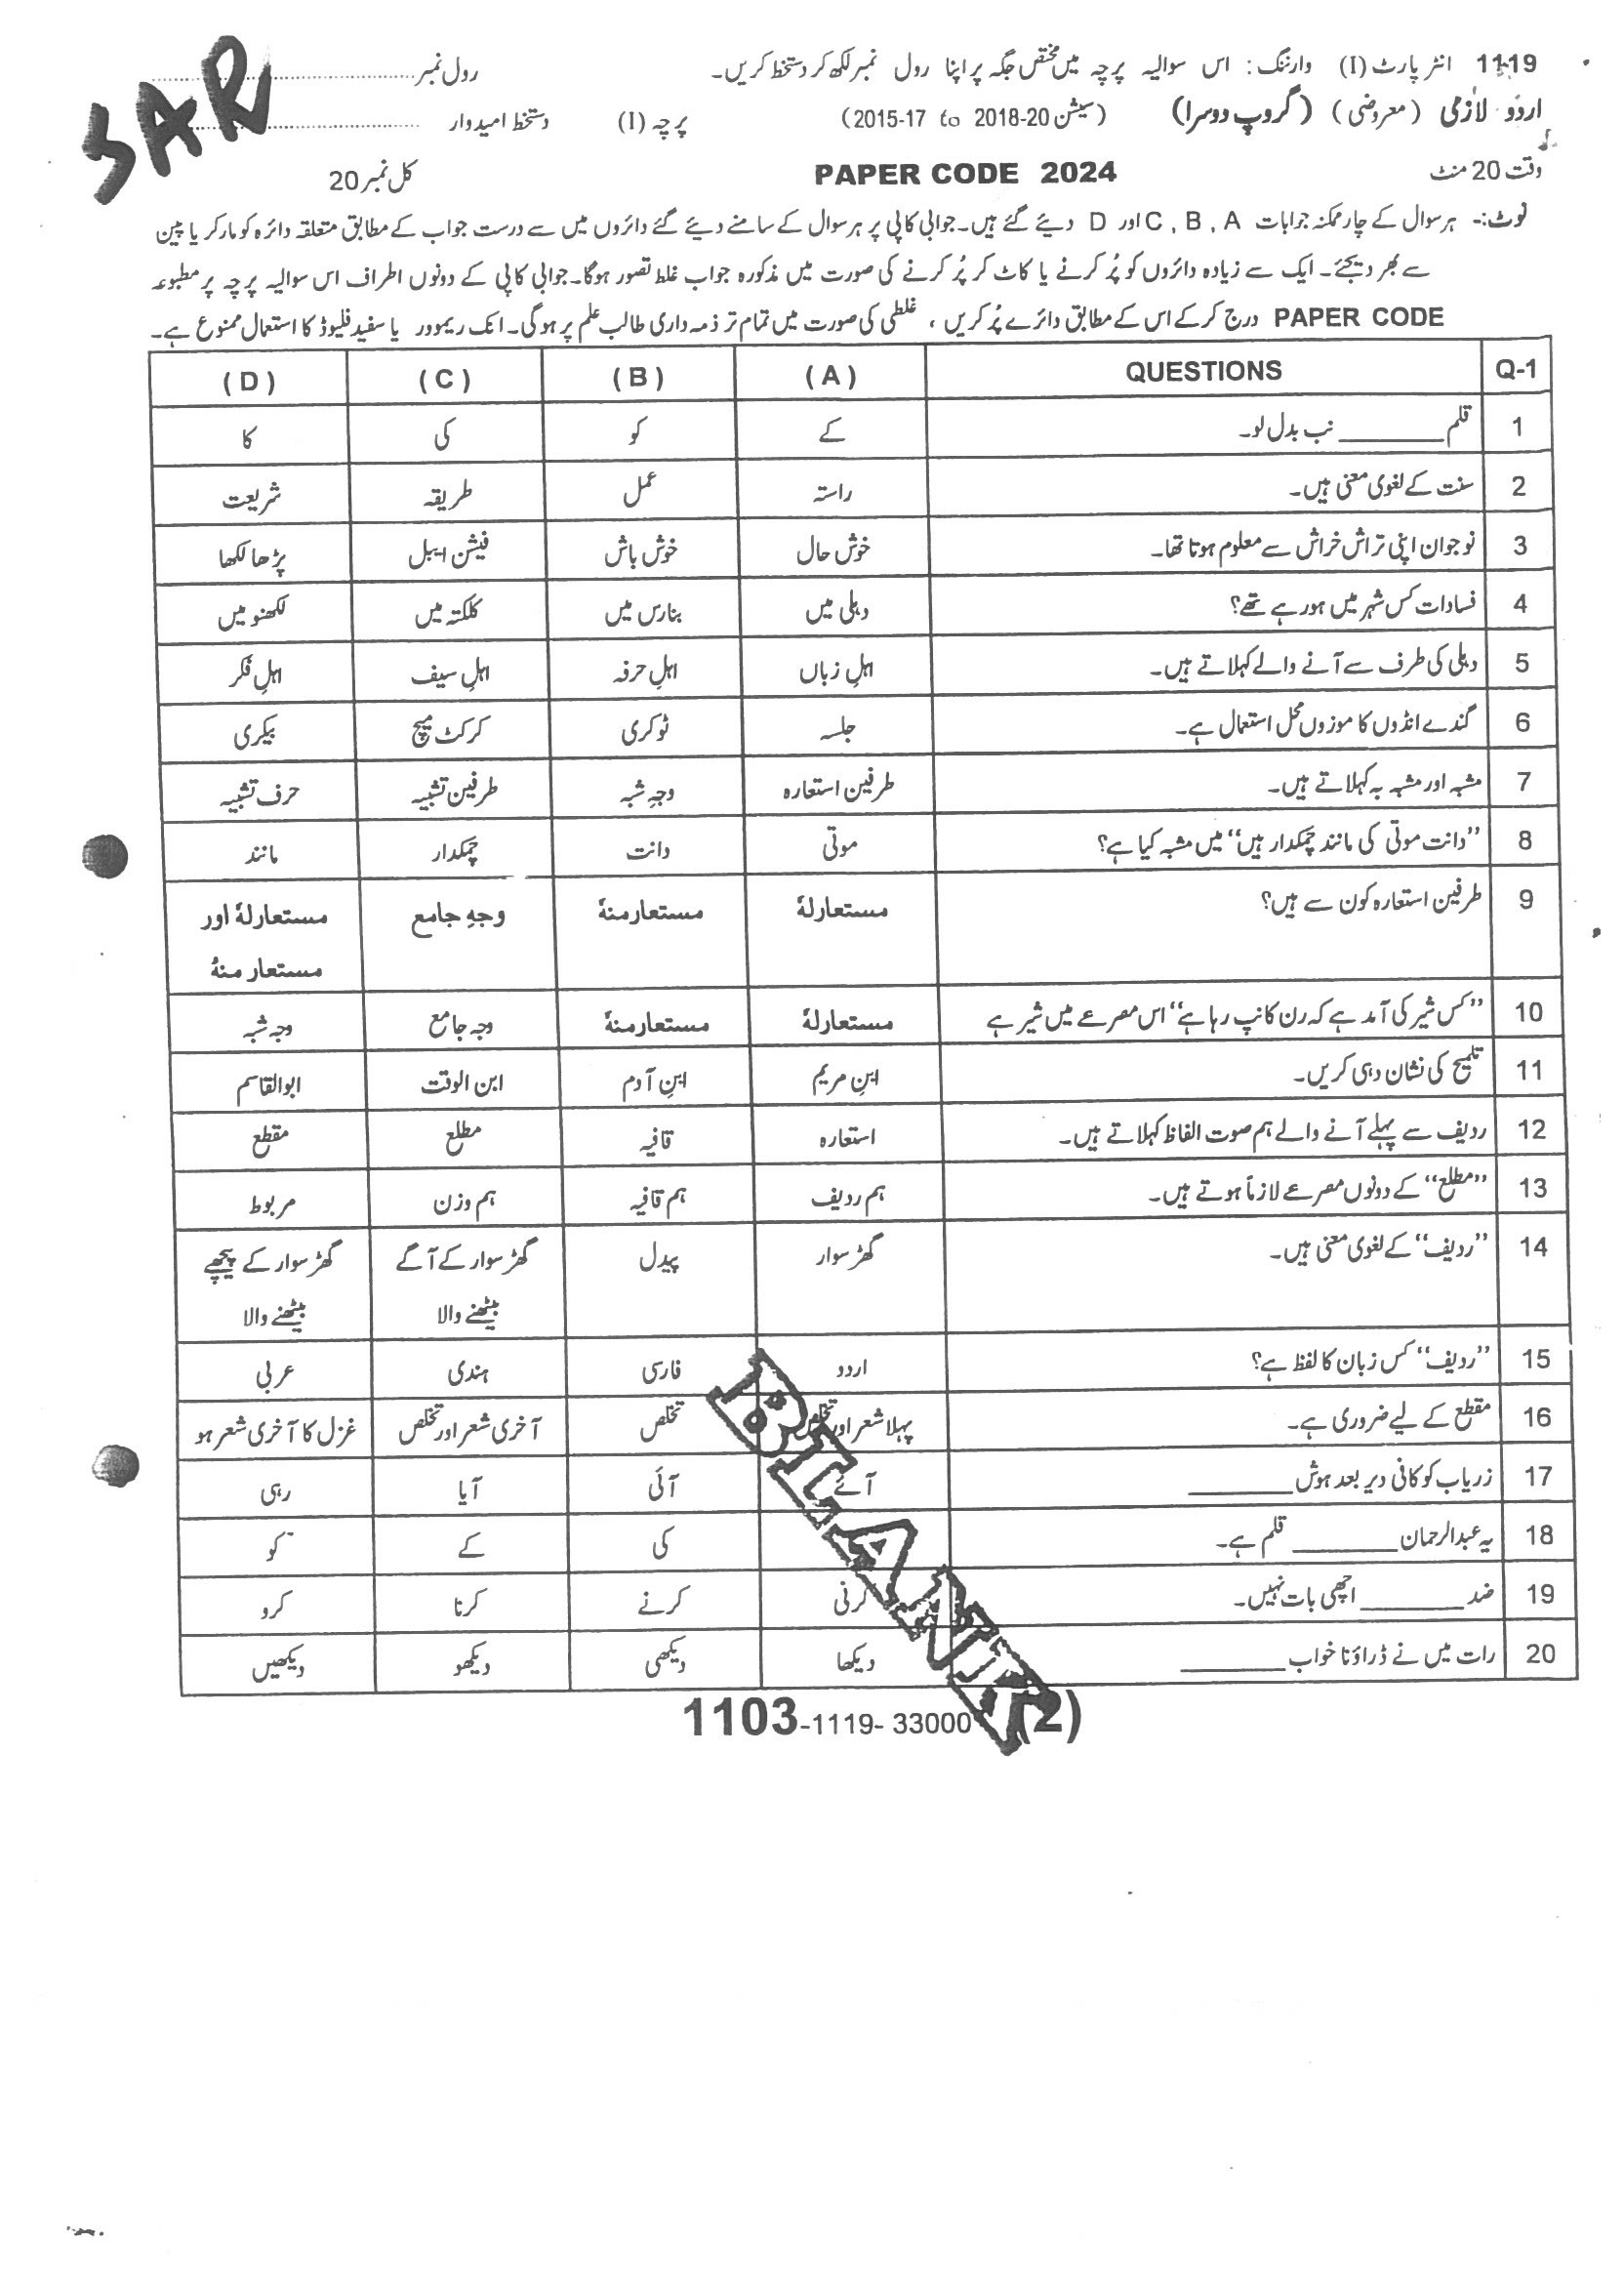 1119 انٹر پارٹ (I) وارننگ: اس سوالیہ پرچہ میں مختص جگہ پر اپنا رول نمبر لکھ کر دستخط کریں۔ رول نمبر
SAR
اردو لازمی (معروضی) (گروپ دوسرا) (سیشن 2015-17 to 2018-20) پرچہ (I) دستخط امیدوار
وقت 20 منٹ PAPER CODE 2024 کل نمبر 20
نوٹ:- ہر سوال کے چار ممکنہ جوابات A , B , C اور D دیئے گئے ہیں۔ جوابی کاپی پر ہر سوال کے سامنے دیئے گئے دائروں میں سے درست جواب کے مطابق متعلقہ دائرہ کو مارکر یا پین
سے بھر دیجئے۔ ایک سے زیادہ دائروں کو پُر کرنے یا کاٹ کر پُر کرنے کی صورت میں مذکورہ جواب غلط تصور ہوگا۔ جوابی کاپی کے دونوں اطراف اس سوالیہ پرچہ پر مطبوعہ
PAPER CODE درج کرکے اس کے مطابق دائرے پُر کریں، غلطی کی صورت میں تمام تر ذمہ داری طالب علم پر ہوگی۔ انک ریموور یا سفید فلیوڈ کا استعمال ممنوع ہے۔
Q-1 QUESTIONS (A) (B) (C) (D)
1 قلم ______ نب بدل لو۔ کے کو کی کا
2 سنت کے لغوی معنی ہیں۔ راستہ عمل طریقہ شریعت
3 نوجوان اپنی تراش خراش سے معلوم ہوتا تھا۔ خوش حال خوش باش فیشن ایبل پڑھا لکھا
4 فسادات کس شہر میں ہورہے تھے؟ دہلی میں بنارس میں کلکتہ میں لکھنو میں
5 دہلی کی طرف سے آنے والے کہلاتے ہیں۔ اہلِ زباں اہلِ حرفہ اہلِ سیف اہلِ فکر
6 گندے انڈوں کا موزوں محل استعمال ہے۔ جلسہ ٹوکری کرکٹ میچ بیکری
7 مشبہ اور مشبہ بہ کہلاتے ہیں۔ طرفین استعارہ وجہِ شبہ طرفین تشبیہ حرف تشبیہ
8 ’’دانت موتی کی مانند چمکدار ہیں‘‘ میں مشبہ کیا ہے؟ موتی دانت چمکدار مانند
9 طرفین استعارہ کون سے ہیں؟ مستعارلہٗ مستعارمنہٗ وجہِ جامع مستعارلہٗ اور
مستعار منہٗ
10 ’’کس شیر کی آمد ہے کہ رن کانپ رہا ہے‘‘ اس مصرعے میں شیر ہے مستعارلہٗ مستعارمنہٗ وجہ جامع وجہ شبہ
11 تلمیح کی نشان دہی کریں۔ ابنِ مریم ابنِ آدم ابن الوقت ابوالقاسم
12 ردیف سے پہلے آنے والے ہم صوت الفاظ کہلاتے ہیں۔ استعارہ قافیہ مطلع مقطع
13 ’’مطلع‘‘ کے دونوں مصرعے لازماً ہوتے ہیں۔ ہم ردیف ہم قافیہ ہم وزن مربوط
14 ’’ردیف‘‘ کے لغوی معنی ہیں۔ گھڑ سوار پیدل گھڑ سوار کے آگے گھڑ سوار کے پیچھے
بیٹھنے والا بیٹھنے والا
15 ’’ردیف‘‘ کس زبان کا لفظ ہے؟ اردو فارسی ہندی عربی
16 مقطع کے لیے ضروری ہے۔ پہلا شعر اور تخلص تخلص آخری شعر اور تخلص غزل کا آخری شعر ہو
17 زریاب کو کافی دیر بعد ہوش ______ آئے آئی آیا رہی
18 یہ عبدالرحمان ______ قلم ہے۔ کی کے کو
19 ضد ______ اچھی بات نہیں۔ کرنی کرنے کرنا کرو
20 رات میں نے ڈراؤنا خواب ______ دیکھا دیکھی دیکھو دیکھیں
BLANK
1103-1119- 33000 (2)